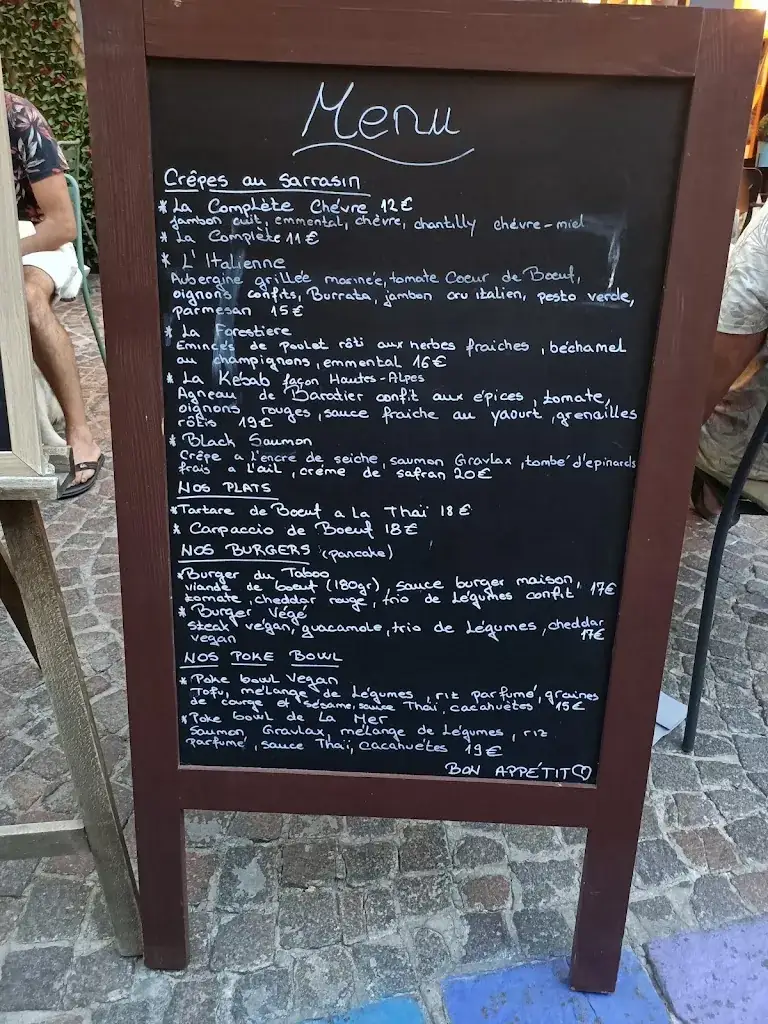 Menu
Crêpes au Sarrasin
* La Complète Chèvre 12€
jambon cuit, emmental, chèvre, chantilly chèvre-miel
* La Complète 11€
* L'Italienne
Aubergine grillée marinée, tomate Coeur de Boeuf,
oignons confits, Burrata, jambon cru italien, pesto verde,
parmesan 15€
* La Forestiere
Emincés de Poulet rôti aux herbes fraiches, béchamel
au champignons, emmental 16€
* La Kébab façon Hautes-Alpes
Agneau de Baratier confit aux épices, tomate,
oignons rouges, sauce fraiche au yaourt, grenailles
rôtis 19€
* Black Saumon
Crêpe a l'encre de seiche, saumon Gravlax, tombé d'epinards
frais a l'ail, crème de safran 20€
NOS PLATS
* Tartare de Boeuf a La Thaï 18€
* Carpaccio de Boeuf 18€
NOS BURGERS (pancake)
* Burger du Taboo
viande de boeuf (180gr), sauce burger maison,
tomate, cheddar rouge, trio de Légumes confit 17€
* Burger Végé
steak végan, guacamole, trio de Légumes, cheddar
vegan 17€
NOS POKE BOWL
* Poke bowl Vegan
Tofu, mélange de Légumes, riz parfumé, graines
de courge et sésame, sauce Thaï, cacahuètes 15€
* Poke bowl de La Mer
Saumon Gravlax, mélange de Légumes, riz
Parfumé, sauce Thaï, Cacahuètes 19€
BON APPÉTIT